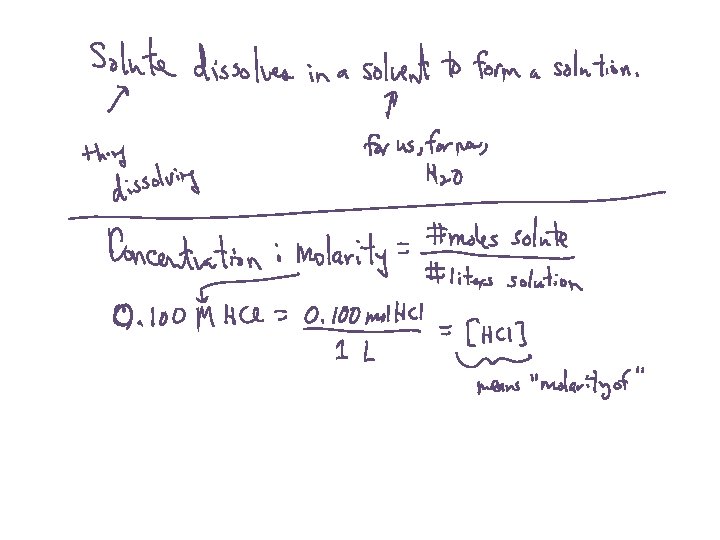 Solute dissolves in a solvent to form a solution.
thing dissolving
for us, for now, H2O
Concentration : Molarity = #moles solute / #liters solution
0.100 M HCl = 0.100 mol HCl / 1 L = [HCl]
means "molarity of"